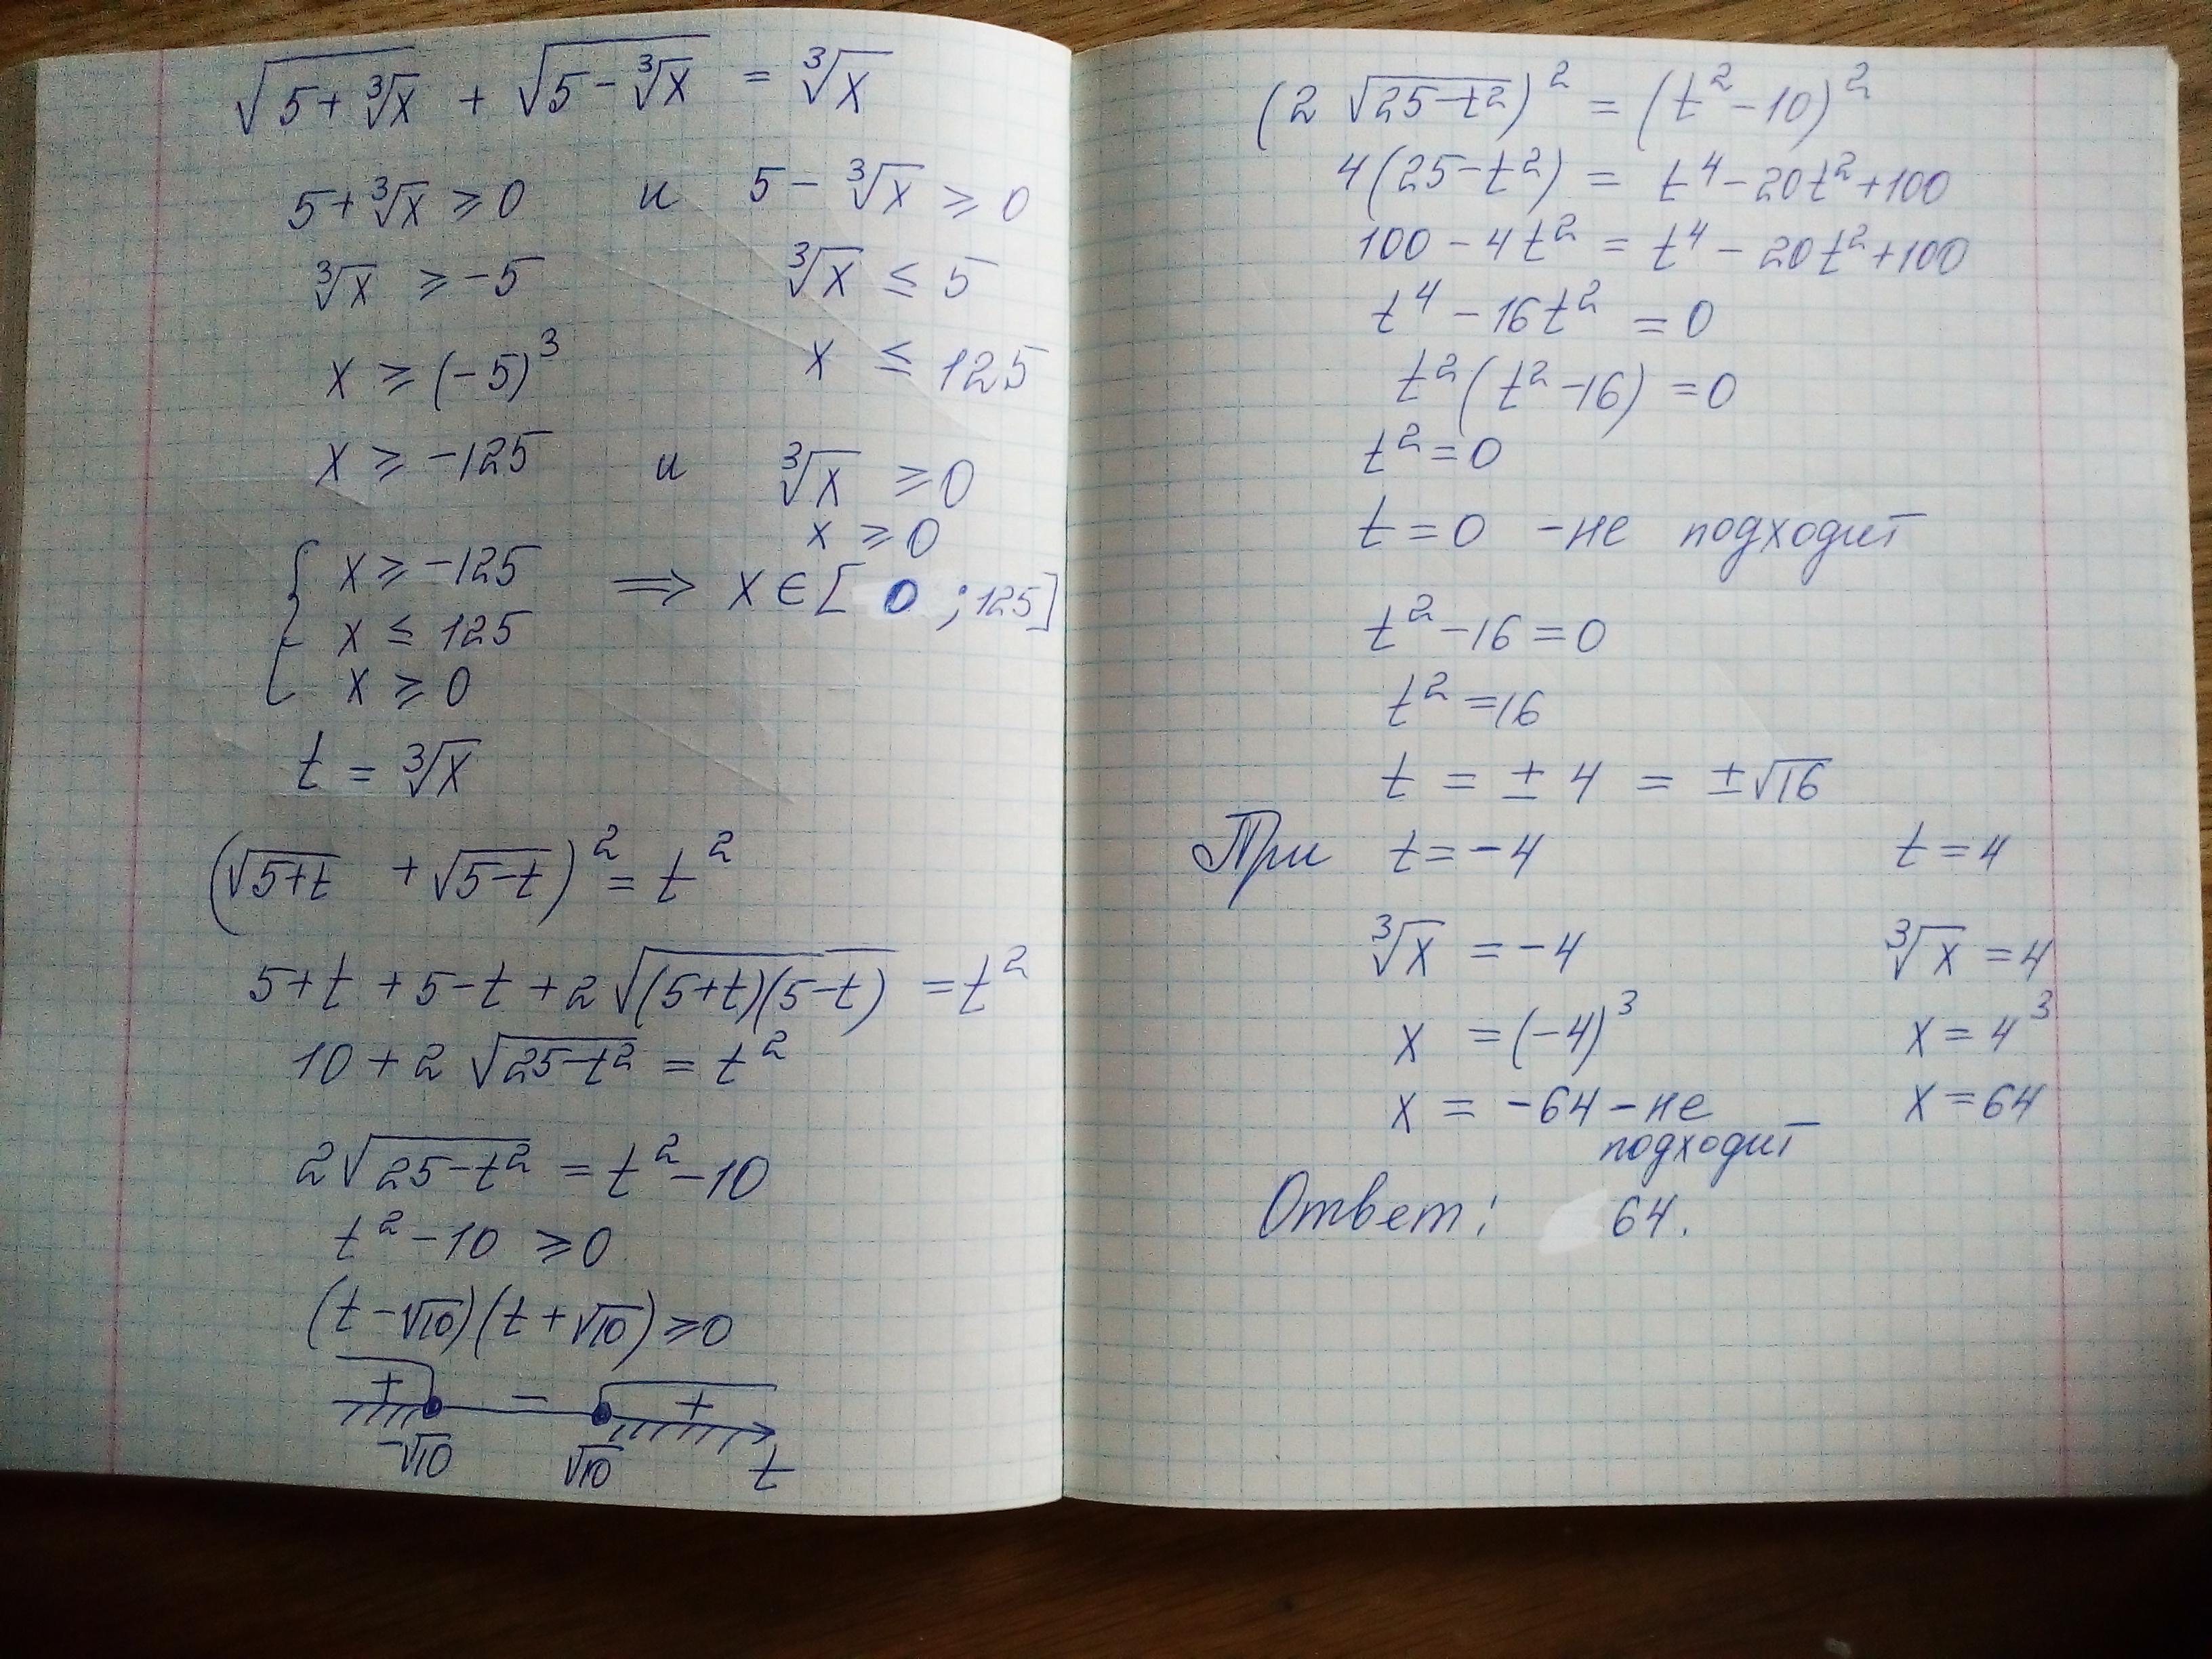 √(5+∛x) + √(5-∛x) = ∛x
5+∛x ≥ 0 и 5-∛x ≥ 0
∛x ≥ -5 ∛x ≤ 5
x ≥ (-5)³ x ≤ 125
x ≥ -125 и ∛x ≥ 0
x ≥ 0
{ x ≥ -125 ⟹ x ∈ [ 0 ; 125]
x ≤ 125
x ≥ 0
t = ∛x
(√(5+t) + √(5-t))² = t²
5+t +5-t +2√((5+t)(5-t)) = t²
10 + 2 √(25-t²) = t²
2√(25-t²) = t²-10
t²-10 ≥ 0
(t-√10)(t+√10) ≥ 0
+ - +
-√10 √10 t
(2 √(25-t²))² = (t²-10)²
4(25-t²) = t⁴-20t²+100
100-4t² = t⁴-20t²+100
t⁴-16t² = 0
t²(t²-16) = 0
t² = 0
t = 0 -не подходит
t²-16 = 0
t² = 16
t = ± 4 = ±√16
При t = -4 t = 4
∛x = -4 ∛x = 4
x = (-4)³ x = 4³
x = -64 - не x = 64
подходит
Ответ: 64.